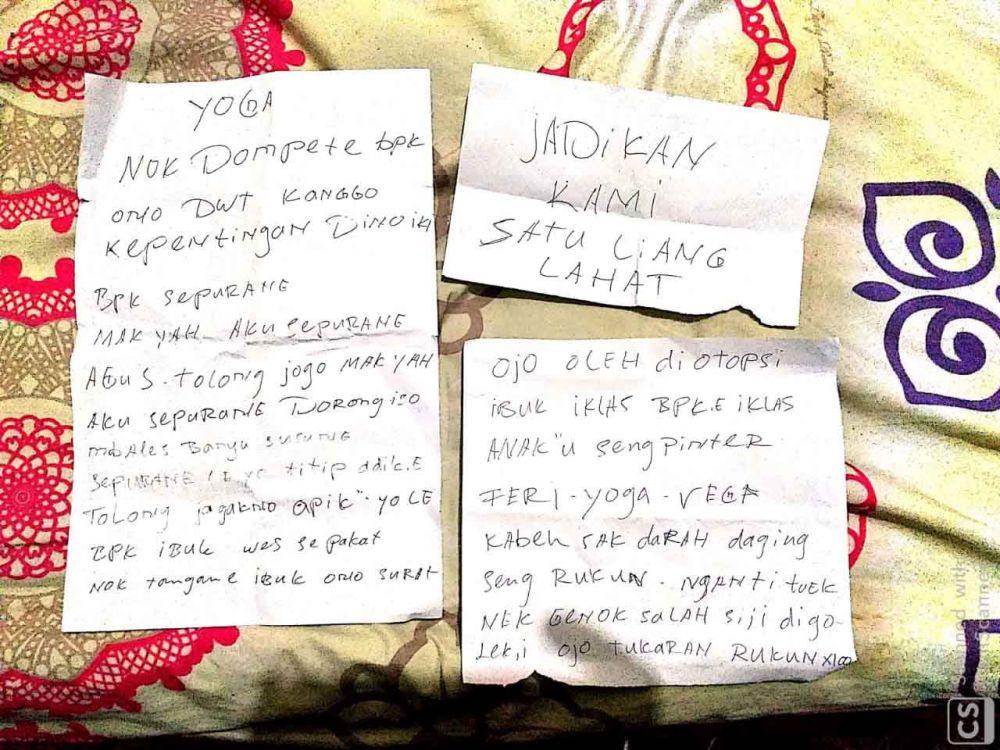 YOGA
NOK Dompete bpk
ONO DWT KANGGO
KEPENTINGAN DINO iKi
BPK SEPURANE
MAK YAH AKU SEPURANE
AGUS. tolong jogo MAK YAH
AKU SEPURANE DORONG iSO
mbAles Banyu susune
SEPURANE titip adik.E
TOLONG jagakno apik" YO LE
BPK iBUK wes sepakat
NOK tangane iBUK ONO SURAT
JADiKAN
KAMi
SATU LiANG
LAHAT
OJO OLEH di OTOPSi
iBUK iKLAS BPK.E iKLAS
ANAK"U seng PiNTER
FERi - YOGA - VEGA
KABEH SAK daRAH daging
Seng RUKUN. NGANTi tuEK
NEK GENOK SALAH Siji digo-
LEKi OJO tUKARAN RUKUN X100
Scanned with
CS